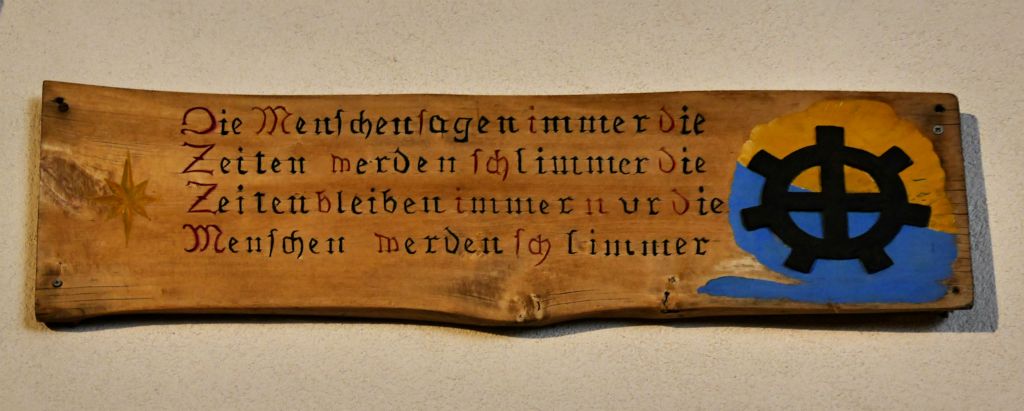 Die Menschen sagen immer die
Zeiten werden schlimmer die
Zeiten bleiben immer nur die
Menschen werden schlimmer